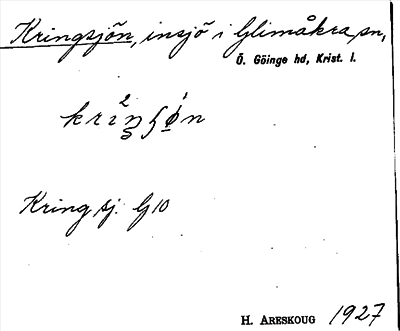 Kringsjön, insjö i Glimåkra sn,
Ö. Göinge hd, Krist. l.
Kring sj. G 10
H. ARESKOUG 1927